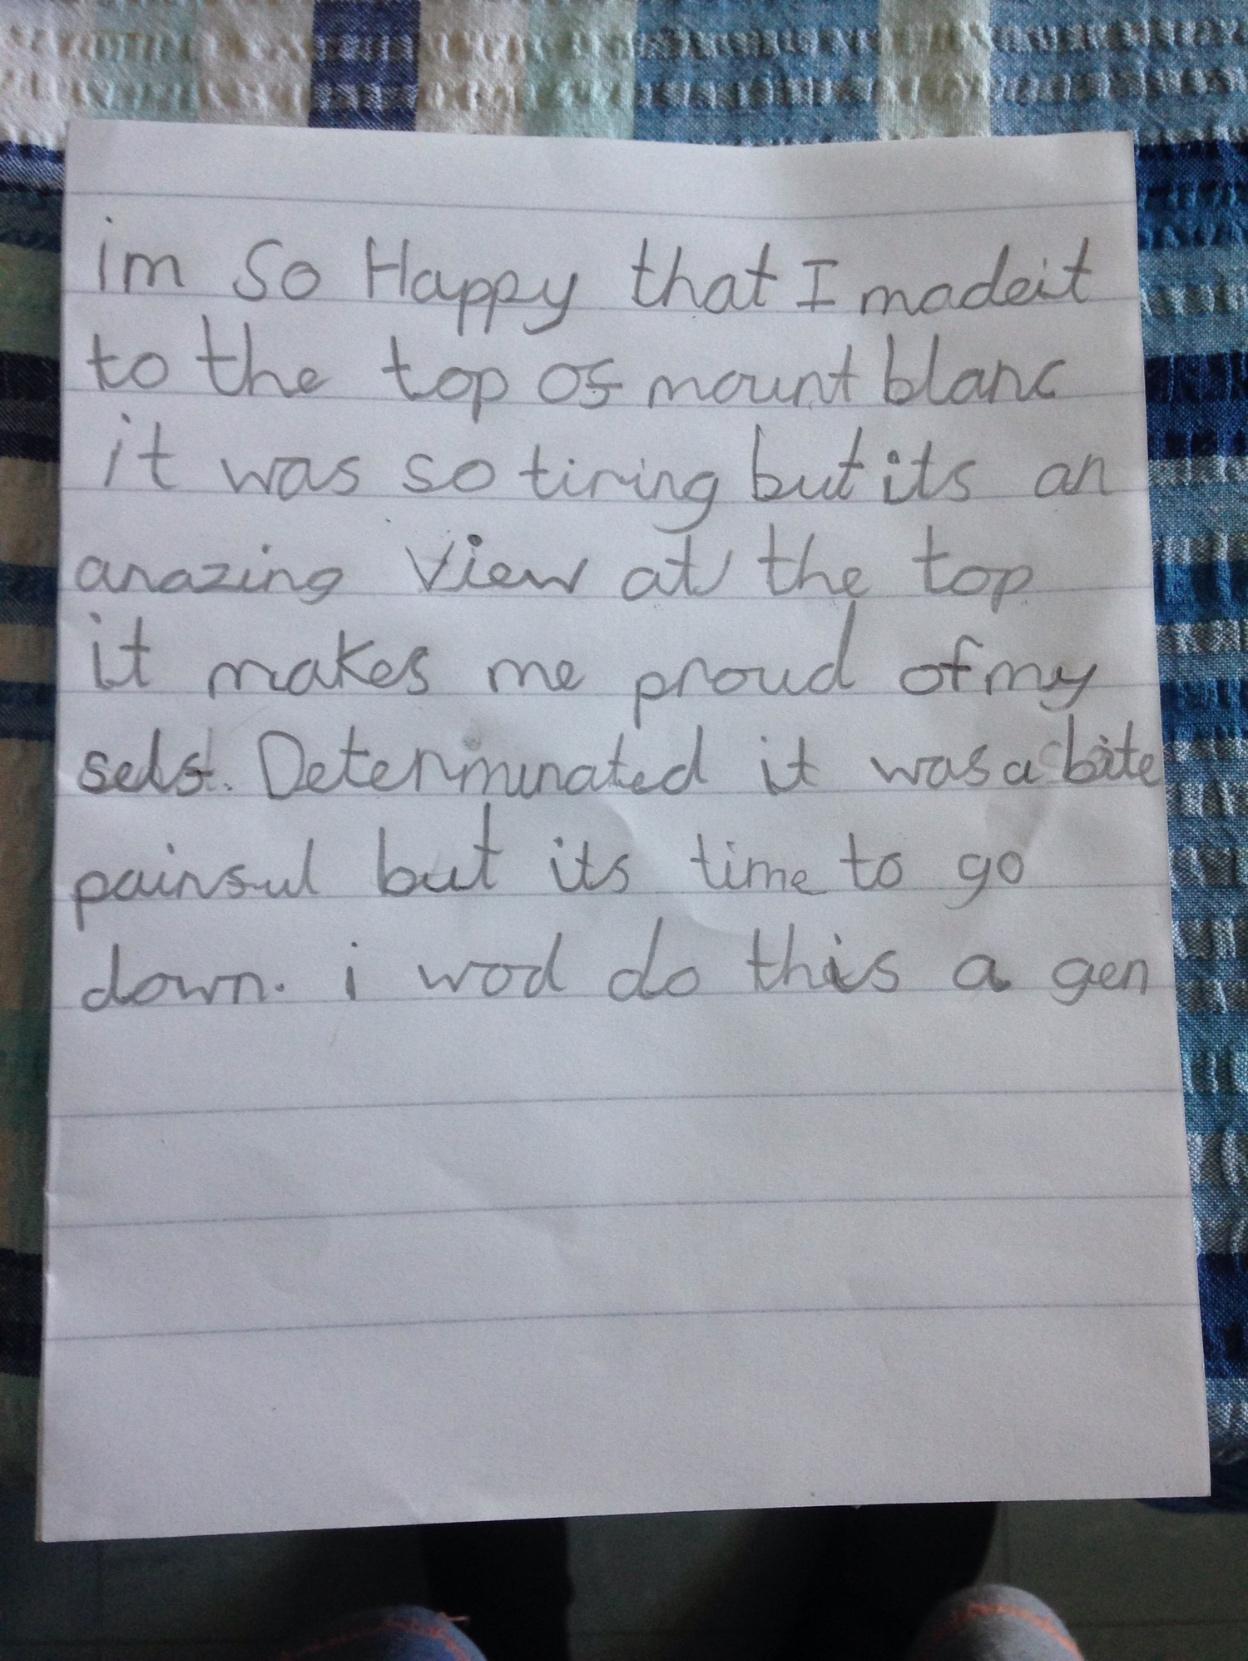 im So Happy that I madeit
to the top of mount blanc
it was so tiring but its an
anazing view at the top
it makes me proud of my
selst. Determinated it was a bite
painful but its time to go
down. i wod do this a gen